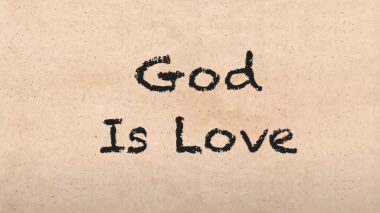 God
Is Love